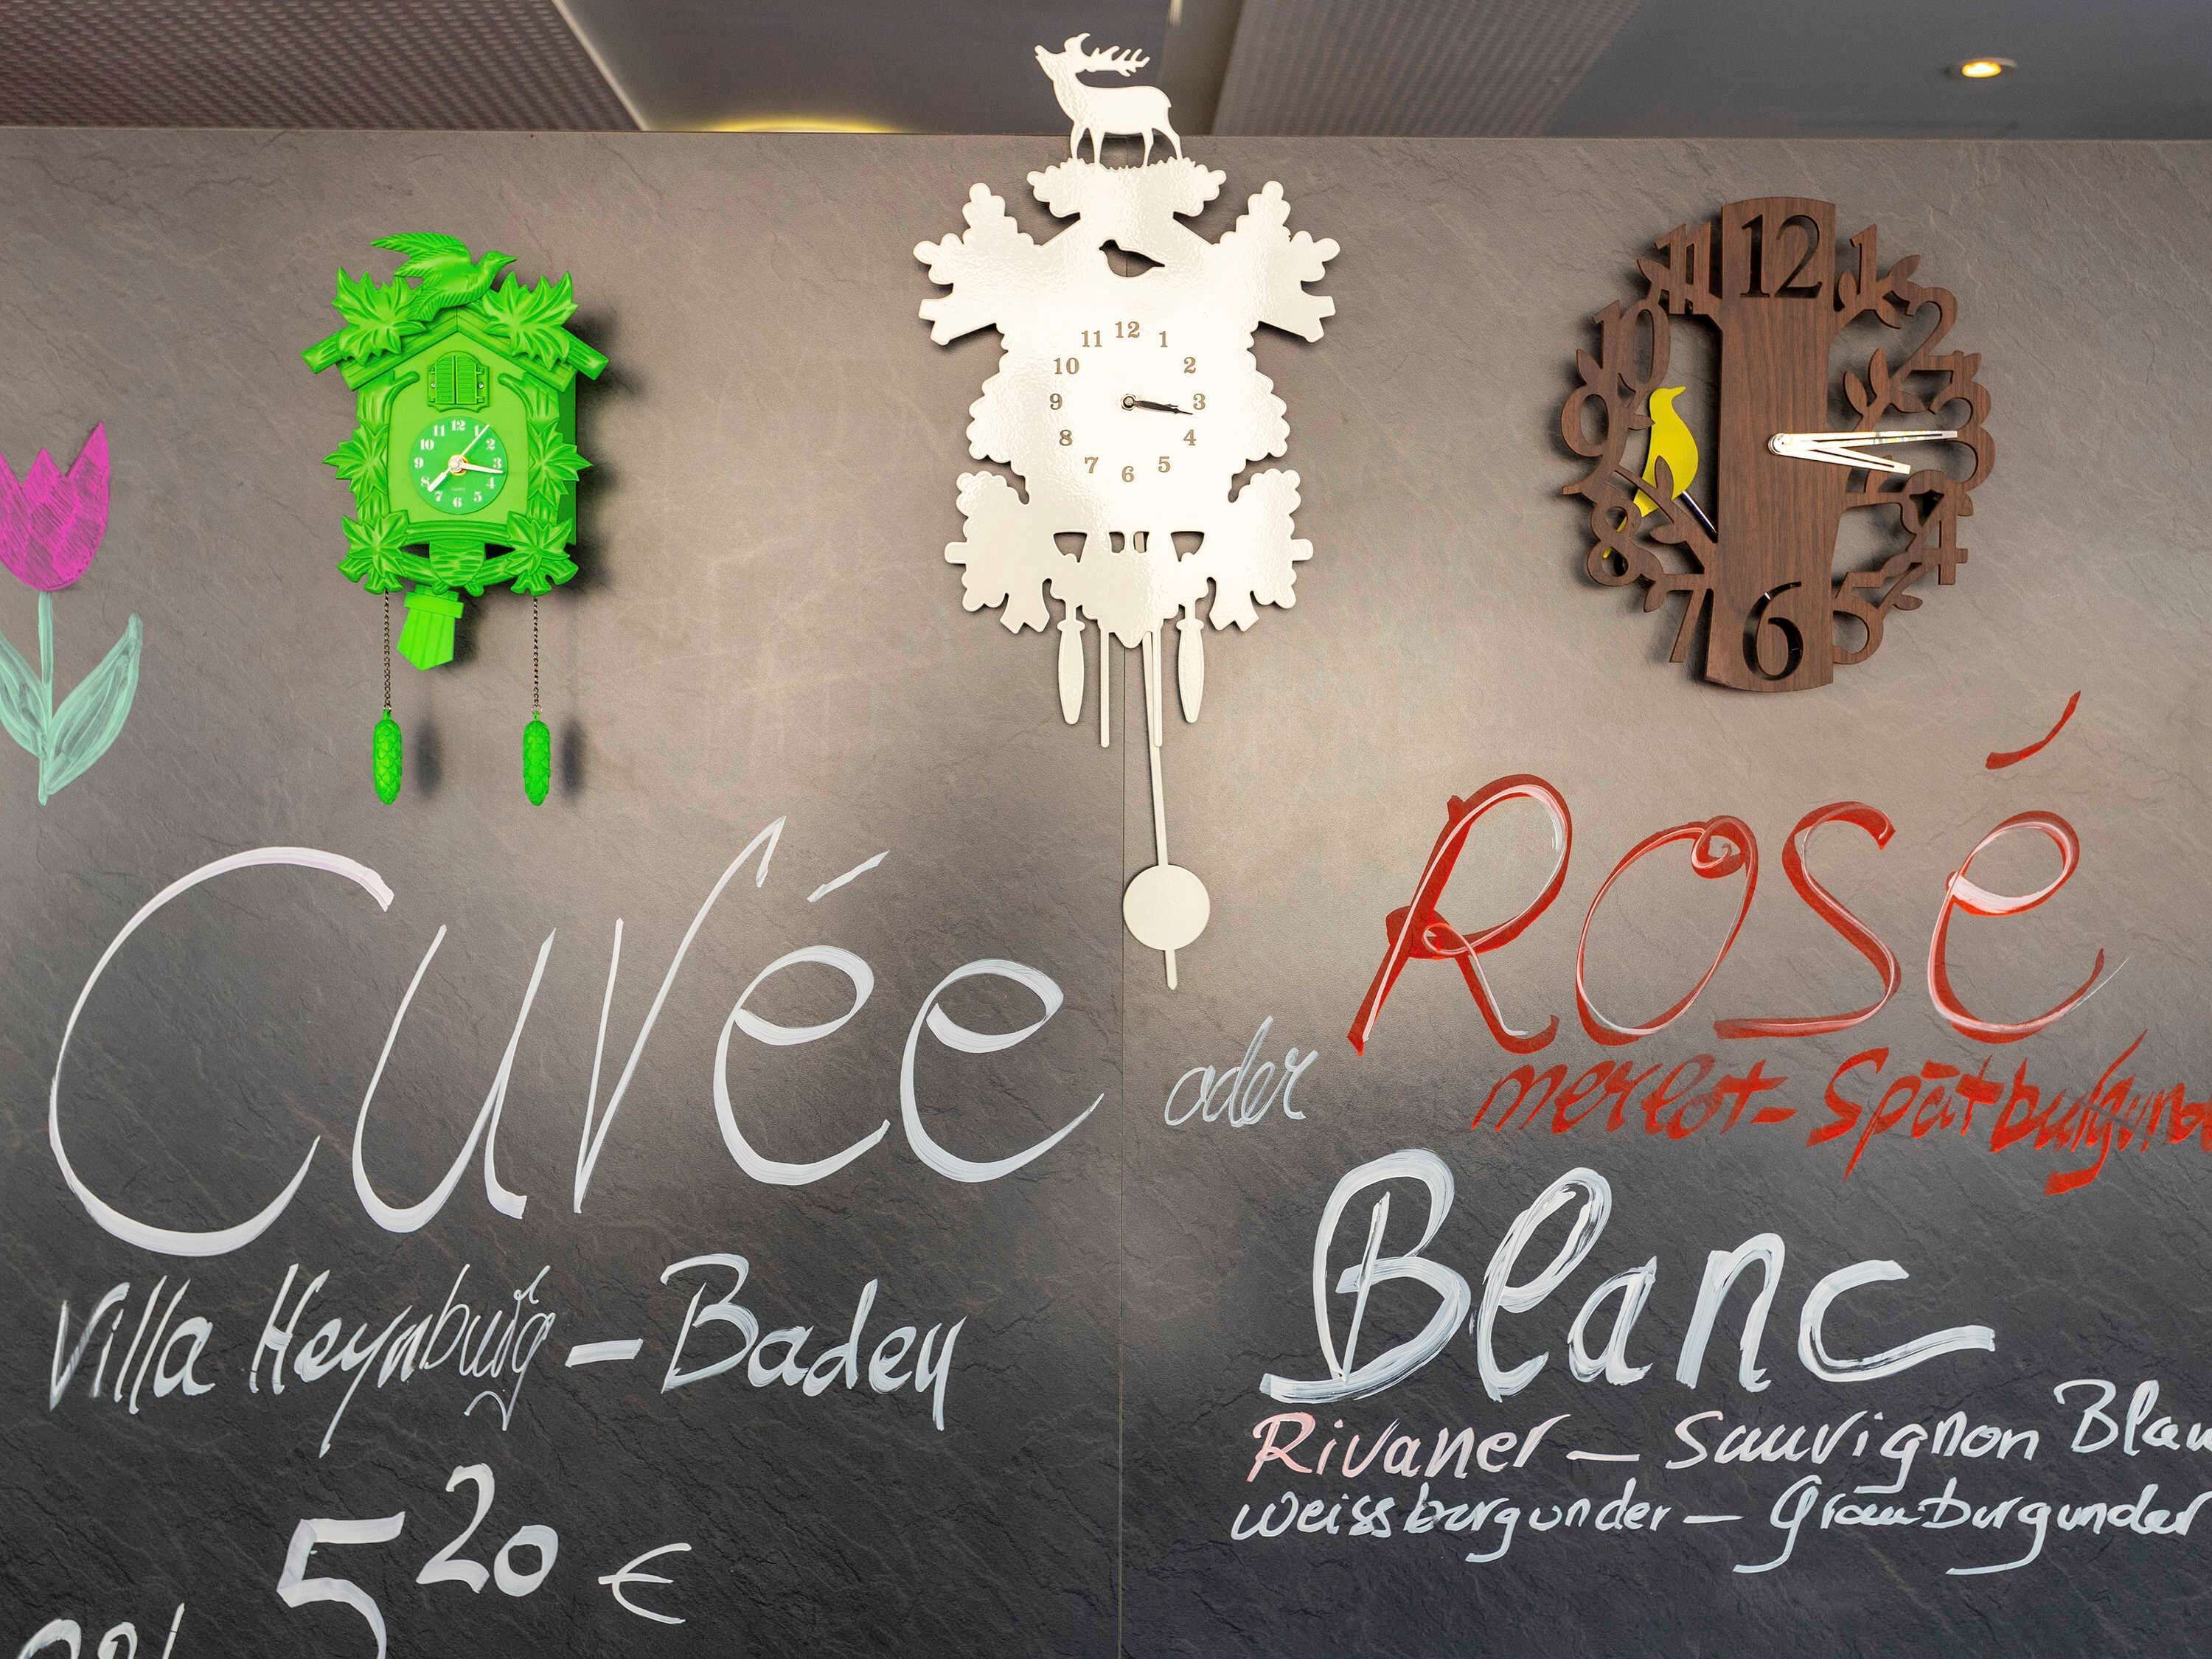 12 1 2 3 4 5 6 7 8 9 10 11
QUARTZ
12 1 2 3 4 5 6 7 8 9 10 11
12 1 2 3 4 5 6 7 8 9 10 11
Cuvée
Villa Heynburg - Baden
5 20 €
oder
Rosé
merlot - Spätburgund
Blanc
Rivaner - Sauvignon Blan
Weissburgunder - Grauburgunder